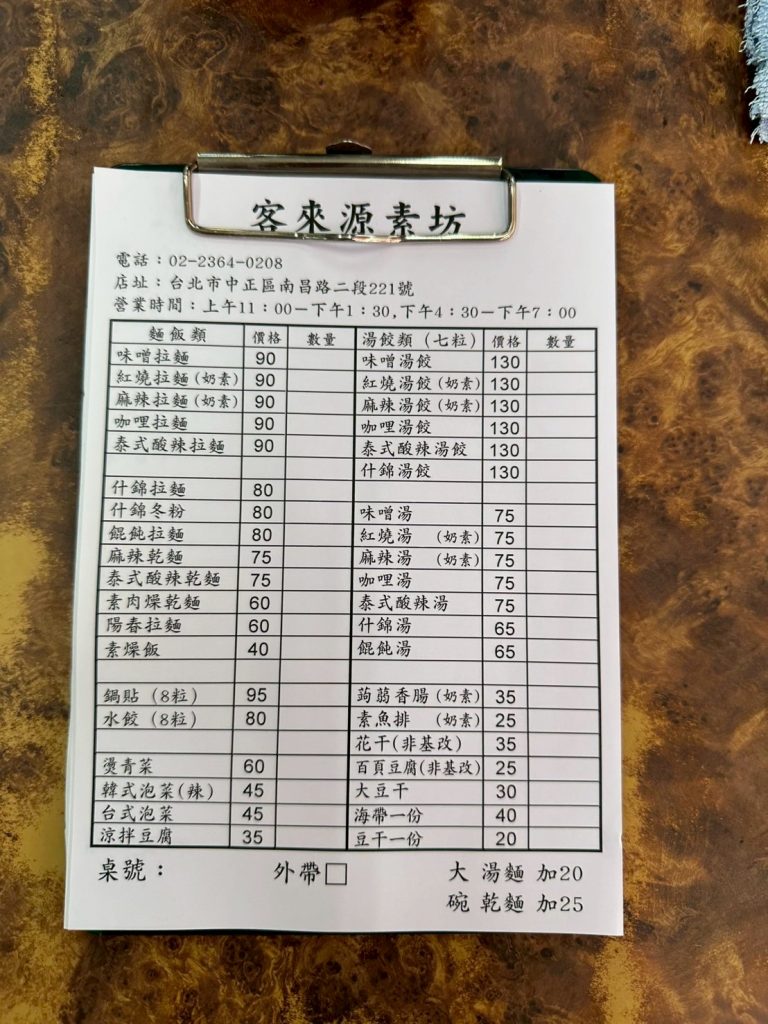 客來源素坊
電話：02-2364-0208
店址：台北市中正區南昌路二段221號
營業時間：上午11：00－下午1：30,下午4：30－下午7：00
麵飯類 價格 數量 湯餃類（七粒） 價格 數量
味噌拉麵 90 味噌湯餃 130
紅燒拉麵(奶素) 90 紅燒湯餃(奶素) 130
麻辣拉麵(奶素) 90 麻辣湯餃(奶素) 130
咖哩拉麵 90 咖哩湯餃 130
泰式酸辣拉麵 90 泰式酸辣湯餃 130
什錦湯餃 130
什錦拉麵 80
什錦冬粉 80 味噌湯 75
餛飩拉麵 80 紅燒湯 (奶素) 75
麻辣乾麵 75 麻辣湯 (奶素) 75
泰式酸辣乾麵 75 咖哩湯 75
素肉燥乾麵 60 泰式酸辣湯 75
陽春拉麵 60 什錦湯 65
素燥飯 40 餛飩湯 65
鍋貼（8粒） 95 蒟蒻香腸(奶素) 35
水餃（8粒） 80 素魚排 (奶素) 25
花干(非基改) 35
燙青菜 60 百頁豆腐(非基改) 25
韓式泡菜(辣) 45 大豆干 30
台式泡菜 45 海帶一份 40
涼拌豆腐 35 豆干一份 20
桌號： 外帶□ 大 湯麵 加20
碗 乾麵 加25